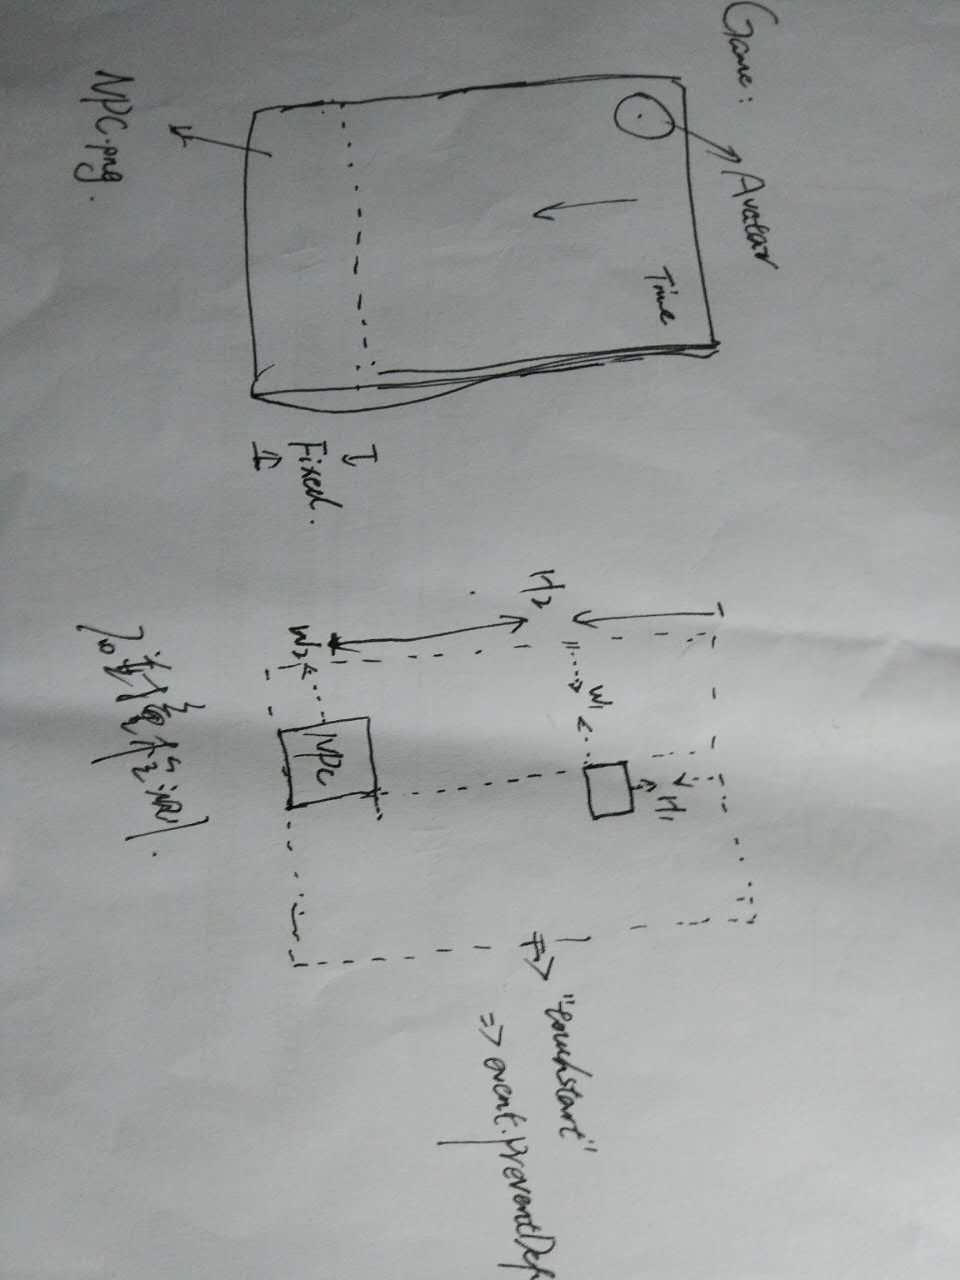 Game:
Avatar
Time
NPC.png.
Fixed.
H2
W1
H1
W2
NPC
=> "touchstart"
=> event.preventDef